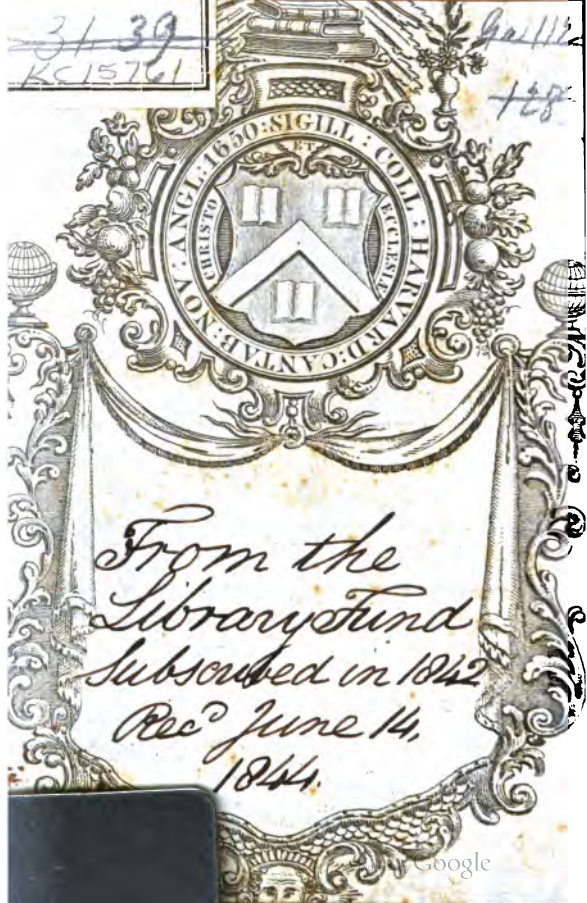 31.39
KC15761
128
SIGILL : COLL : HARVARD : CANTAB : NOV : ANGL : 1650 :
CHRISTO ET ECCLESIÆ
From the
Library Fund
Subscribed in 1842
Recd June 14,
1844.
Google